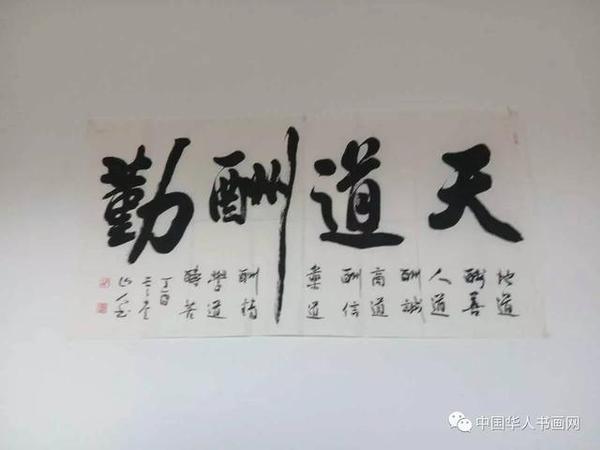 天道酬勤
地道
酬善
人道
酬誠
商道
酬信
業道
酬精
學道
酬苦
丁酉
中国华人书画网